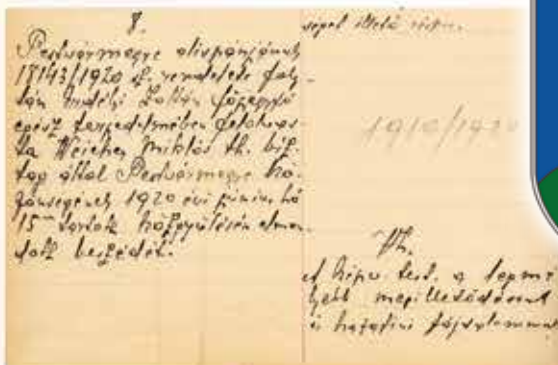 8.
Pestvármegye alispánjának
17143/1920 sz. rendelete foly-
tán Zoltán
terjedelmében felolvas-
ta Weicher Miklós th. biz.
tag által Pestvármegye kö-
zönségének 1920 évi június hó
15 tartott közgyülésén elmon-
dott beszédét.
illető
1910/1920
Vh.
A képv. test. a legmé-
lyebb megilletődéssel
és hazafini fájdalommal